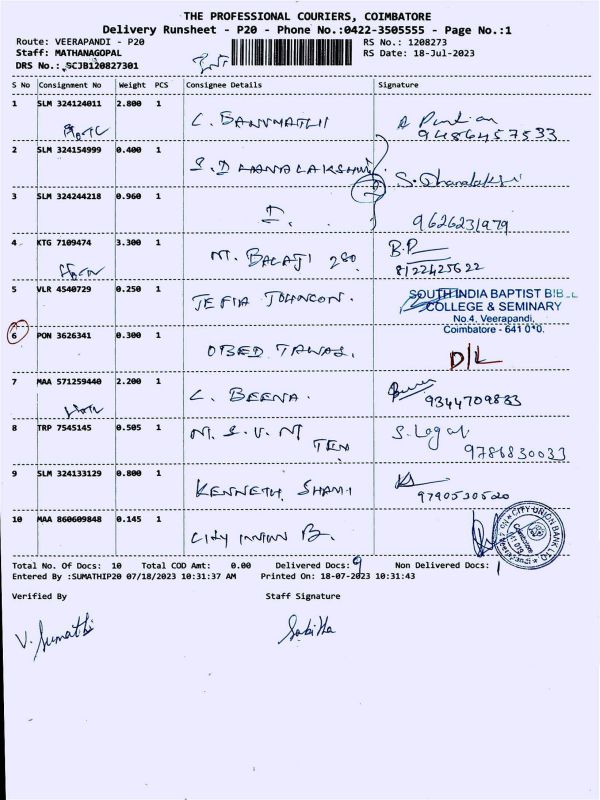 THE PROFESSIONAL COURIERS, COIMBATORE
Delivery Runsheet - P20 - Phone No.:0422-3505555 - Page No.:1
Route: VEERAPANDI - P20
RS No.: 1208273
Staff: MATHANAGOPAL
RS Date: 18-Jul-2023
DRS No.: SCJB120827301
S No Consignment No Weight PCS Consignee Details Signature
1 SLM 324124011 2.800 1 C. BANUMATHI
9486457533
2 SLM 324154999 0.400 1 S. DHANALAKSHMI
S. Dhanalakshmi
3 SLM 324244218 0.960 1 I.
9626231979
4 KTG 7109474 3.300 1 M. BALAJI 280 B.P
8122425622
5 VLR 4540729 0.250 1 JEFIA JOHNCON.
SOUTH INDIA BAPTIST BIBLE
COLLEGE & SEMINARY
No.4, Veerapandi,
Coimbatore - 641 0
6 PON 3626341 0.300 1 OBED
D/L
7 MAA 571259440 2.200 1 C. BEENA.
9344709883
8 TRP 7545145 0.505 1 M. S. V. M
TEN
9786830033
9 SLM 324133129 0.800 1 KENNETH SHAMI
9790530520
10 MAA 860609848 0.145 1 CITY UNION B.
CITY UNION BANK LTD
Total No. Of Docs: 10 Total COD Amt: 0.00 Delivered Docs: 9 Non Delivered Docs: 1
Entered By :SUMATHIP20 07/18/2023 10:31:37 AM Printed On: 18-07-2023 10:31:43
Verified By Staff Signature
V. Sumathi
Sabitha